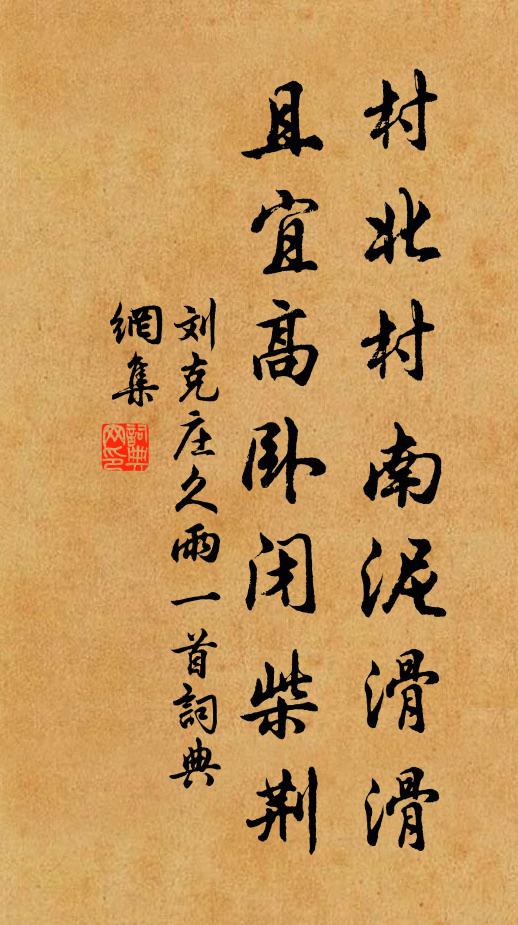 村北村南泥滑滑
且宜高卧闭柴荆
刘克庄久雨一首詞典
網集
詞典
网印